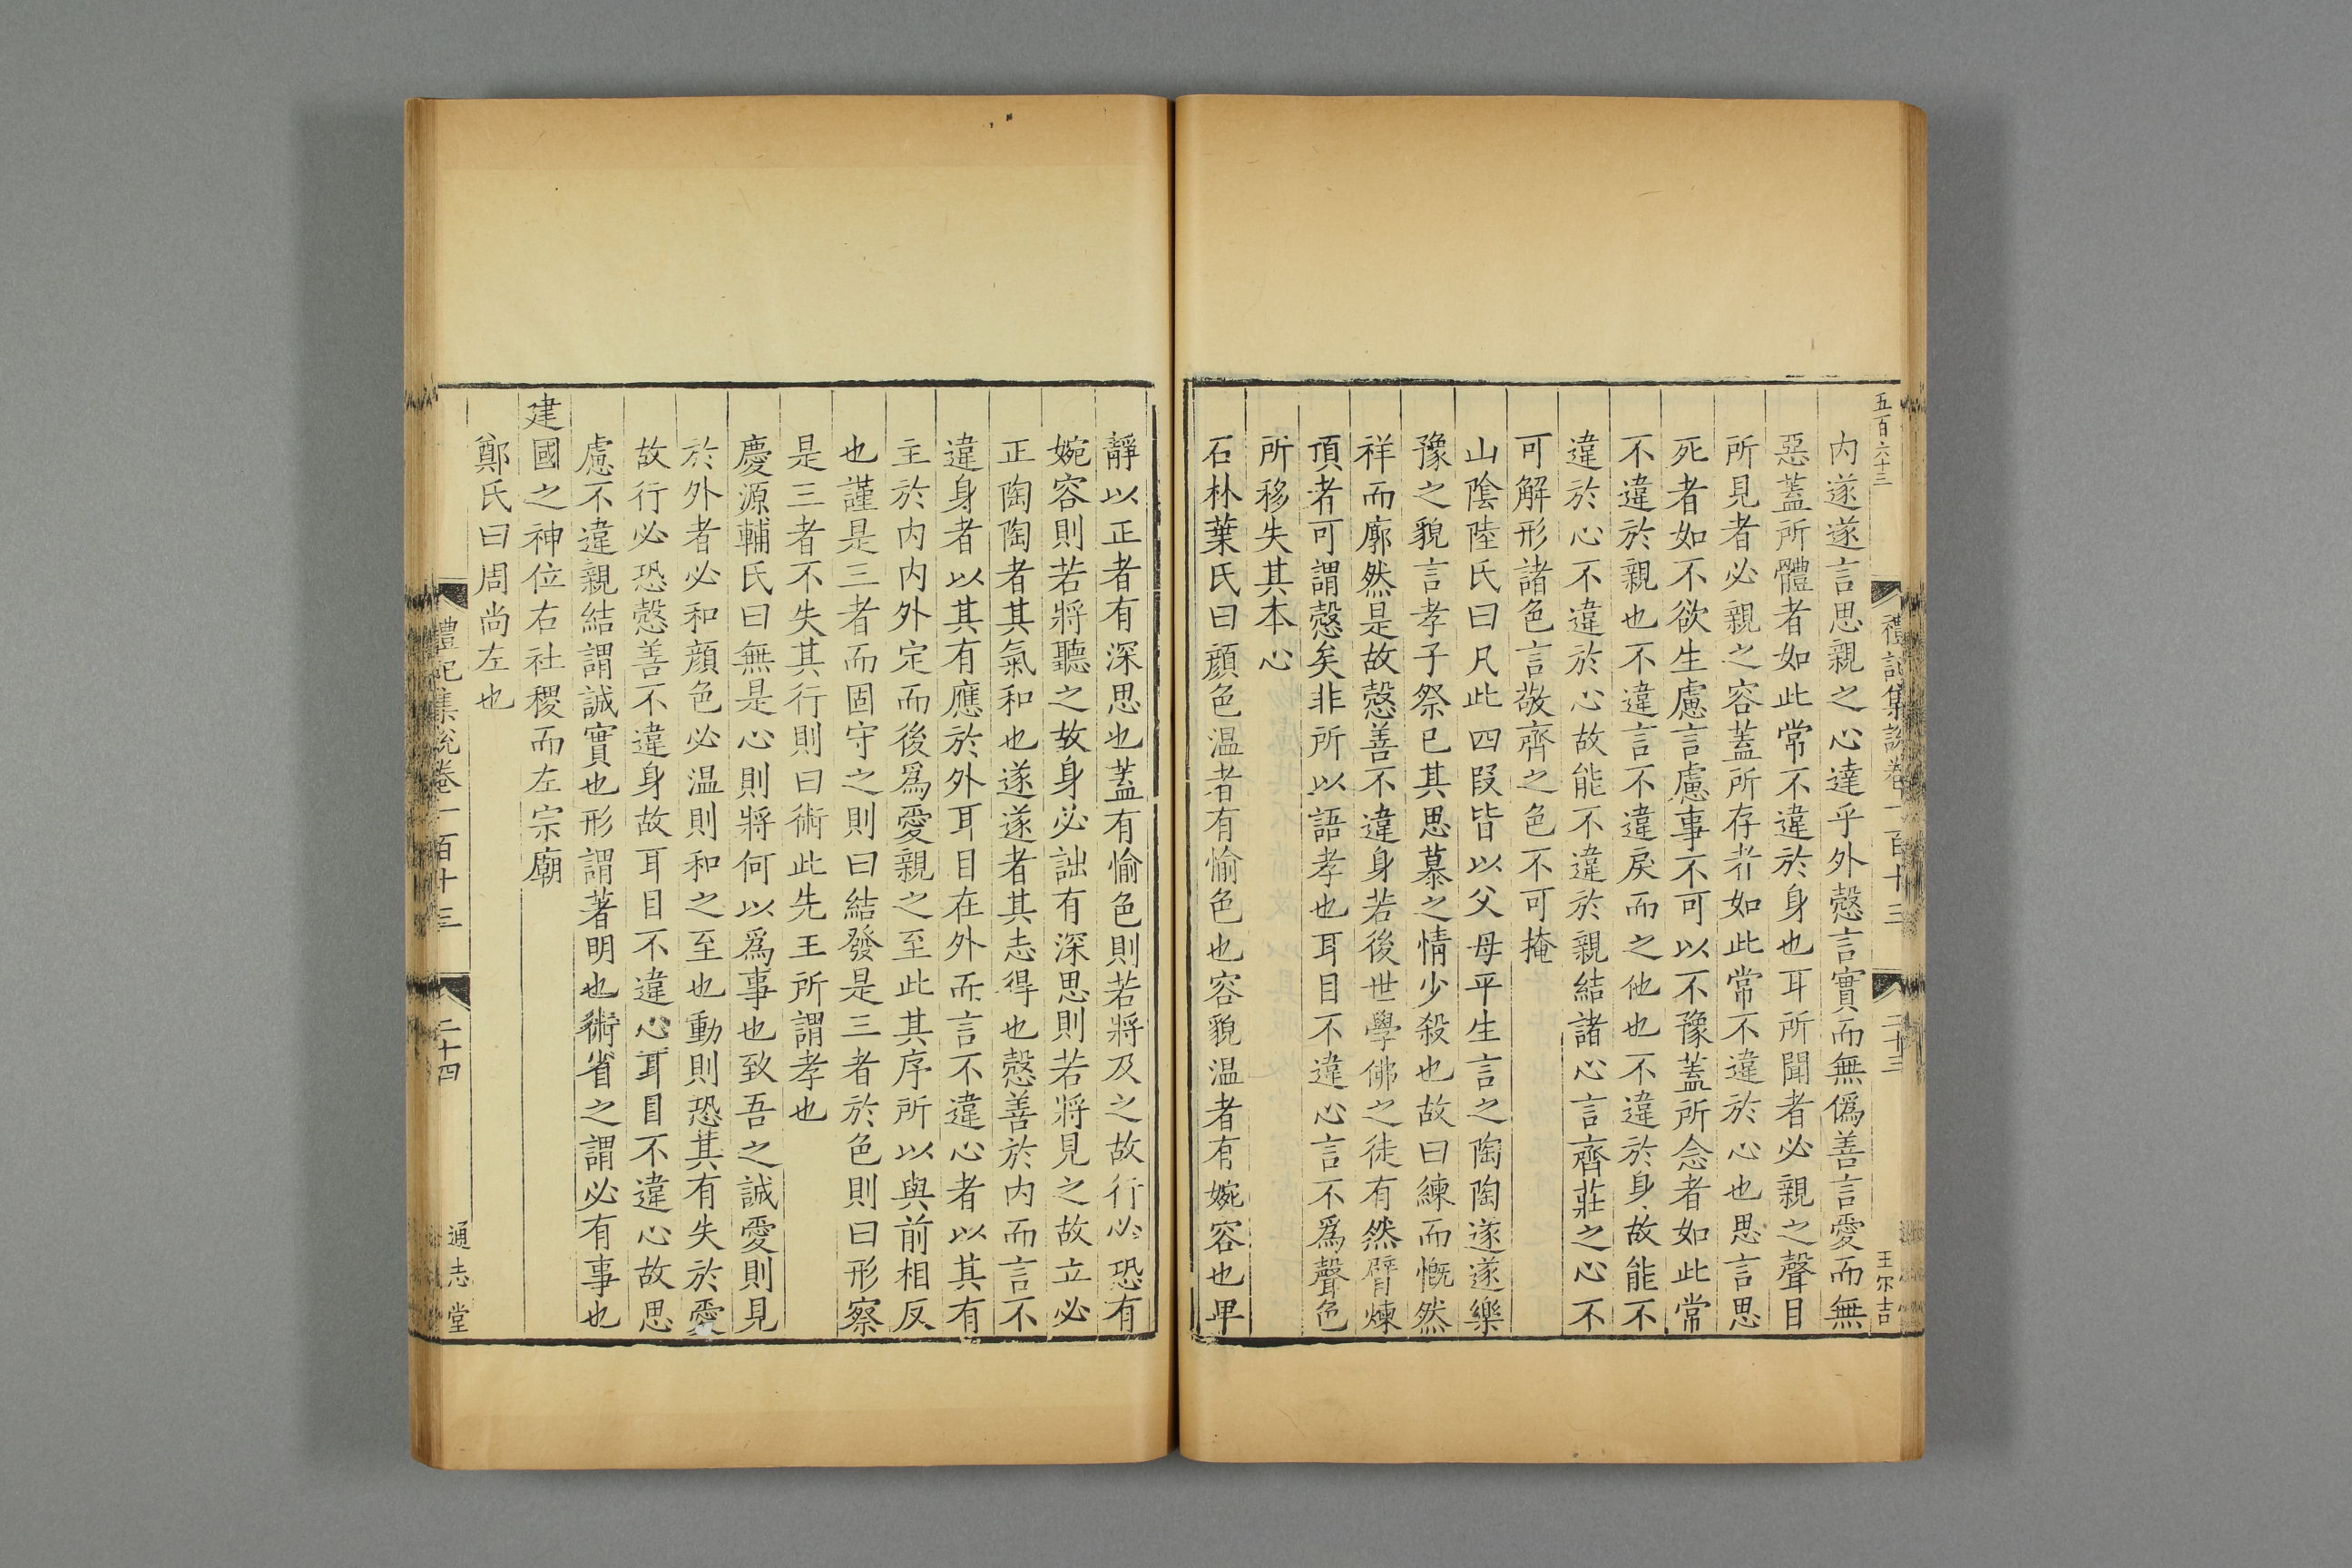 五百六十三
禮記集說卷一百十三
二十三
王尔吉
内遂遂言思親之心達乎外慤言實而無僞善言愛而無
惡蓋所體者如此常不違於身也耳所聞者必親之聲目
所見者必親之容蓋所存者如此常不違於心也思言思
死者如不欲生慮言慮事不可以不豫蓋所念者如此常
不違於親也不違言不違戾而之他也不違於身故能不
違於心不違於心故能不違於親結諸心言齊莊之心不
可解形諸色言敬齊之色不可掩
山陰陸氏曰凡此四叚皆以父母平生言之陶陶遂遂樂
豫之貌言孝子祭已其思慕之情少殺也故曰練而慨然
祥而廓然是故慤善不違身若後世學佛之徒有然臂煉
頂者可謂慤矣非所以語孝也耳目不違心言不爲聲色
所移失其本心
石林葉氏曰顔色温者有愉色也容貌温者有婉容也卑
靜以正者有深思也蓋有愉色則若將及之故行必恐有
婉容則若將聽之故身必詘有深思則若將見之故立必
正陶陶者其氣和也遂遂者其志得也慤善於内而言不
違身者以其有應於外耳目在外而言不違心者以其有
主於内内外定而後爲愛親之至此其序所以與前相反
也謹是三者而固守之則曰結發是三者於色則曰形察
是三者不失其行則曰術此先王所謂孝也
慶源輔氏曰無是心則將何以爲事也致吾之誠愛則見
於外者必和顔色必温則和之至也動則恐其有失於愛
故行必恐慤善不違身故耳目不違心耳目不違心故思
慮不違親結謂誠實也形謂著明也術省之謂必有事也
建國之神位右社稷而左宗廟
鄭氏曰周尚左也
禮記集說卷一百十三
二十四
通志堂